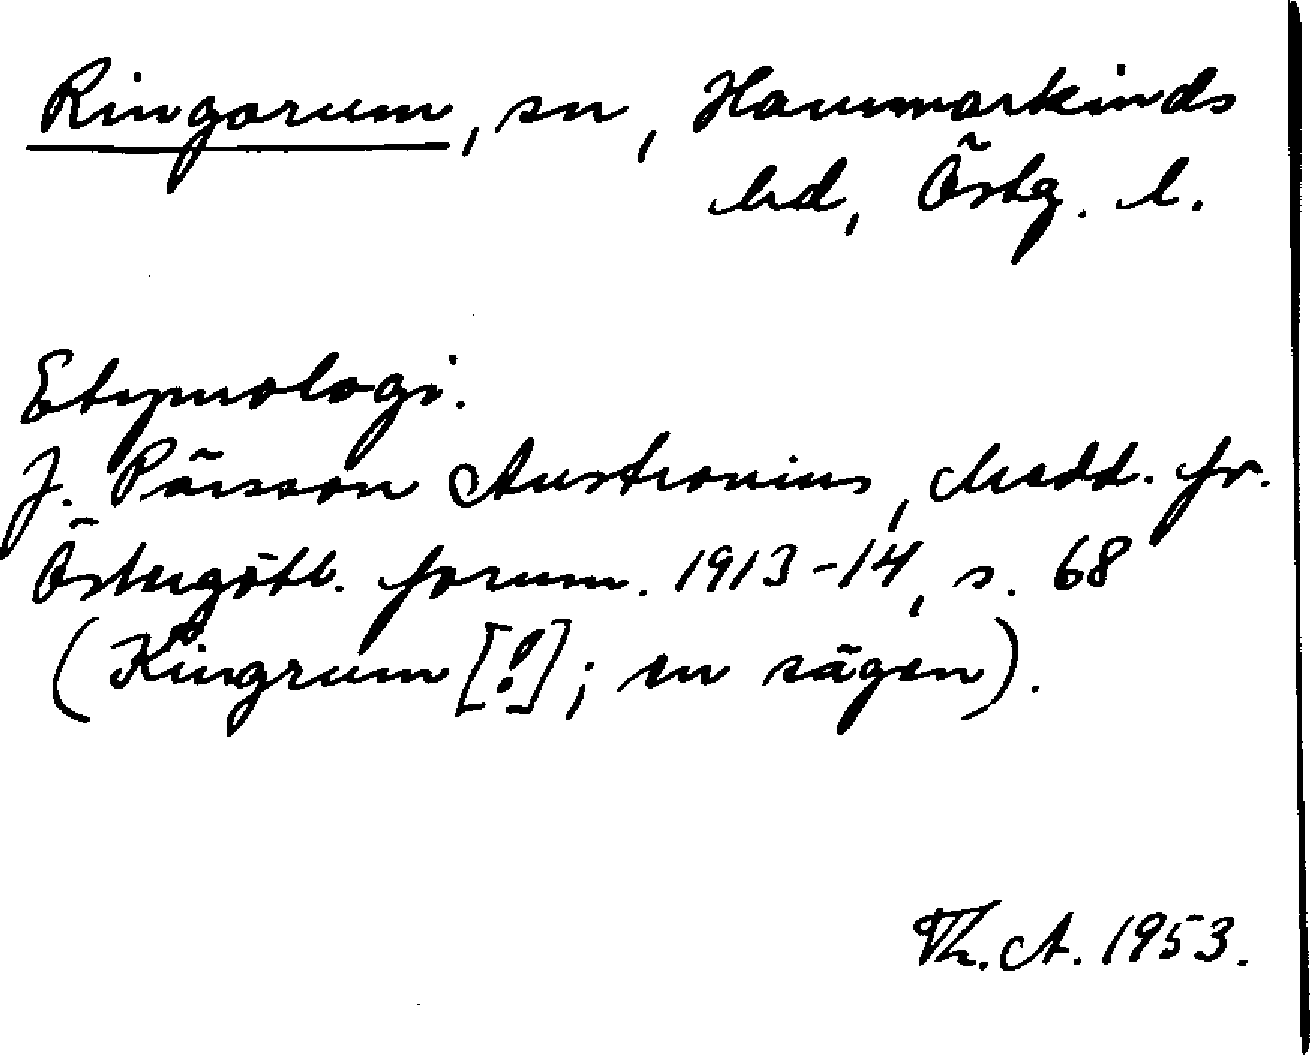 Ringarum, sn, Hammarkinds
hd, Östg. l.
Etymologi.
J. Pärsson Austronius, Medd. fr.
Östergötl. fornm. 1913-14, s. 68
(Kingrum [!]; en sägen).
Th. A. 1953.